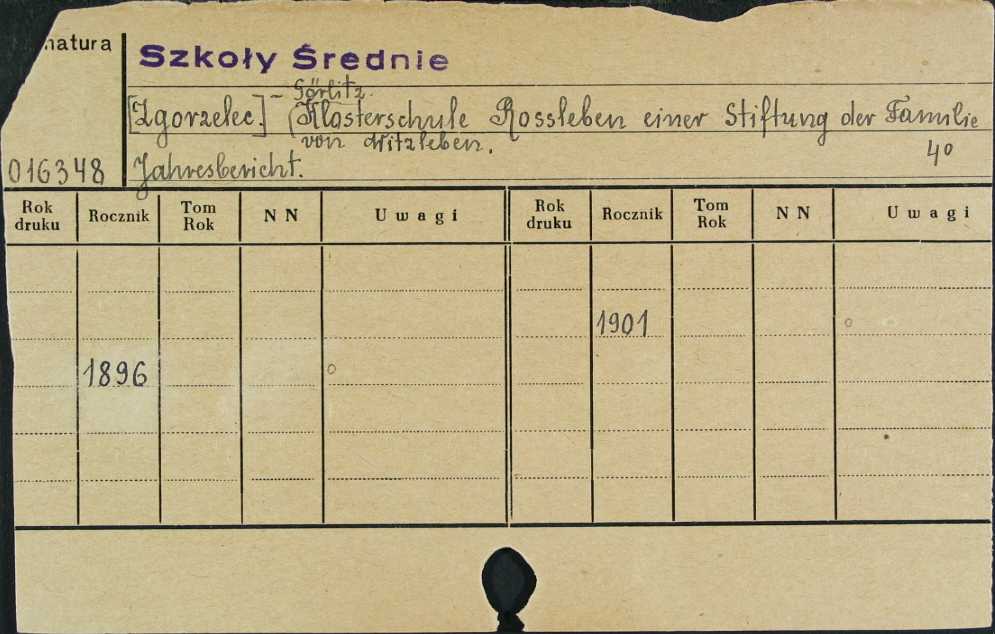 natura
Szkoły Średnie
- Görlitz.
[Zgorzelec] (Klosterschule Rossleben einer Stiftung der Familie
von Witzleben.
4°
016348 Jahresbericht.
Rok druku Rocznik Tom Rok N N Uwagi Rok druku Rocznik Tom Rok N N Uwagi
1901 o
1896 o